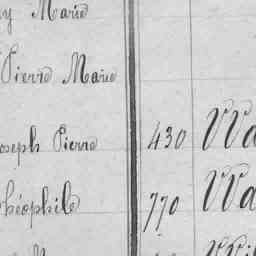 y Marie
Pierre Marie
oseph Pierre 430 Wa
Théophile 770 Wa